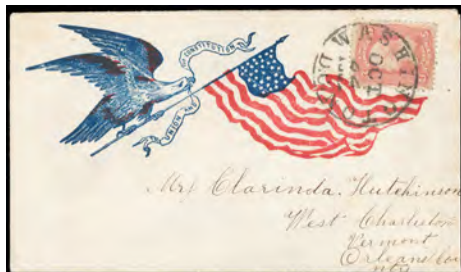 THE CONSTITUTION
UNION AND
WASHINGTON D.C.
OCT
Mrs Clarinda. Hutchinson
West Charleston
Vermont
Orleans Cou
nty